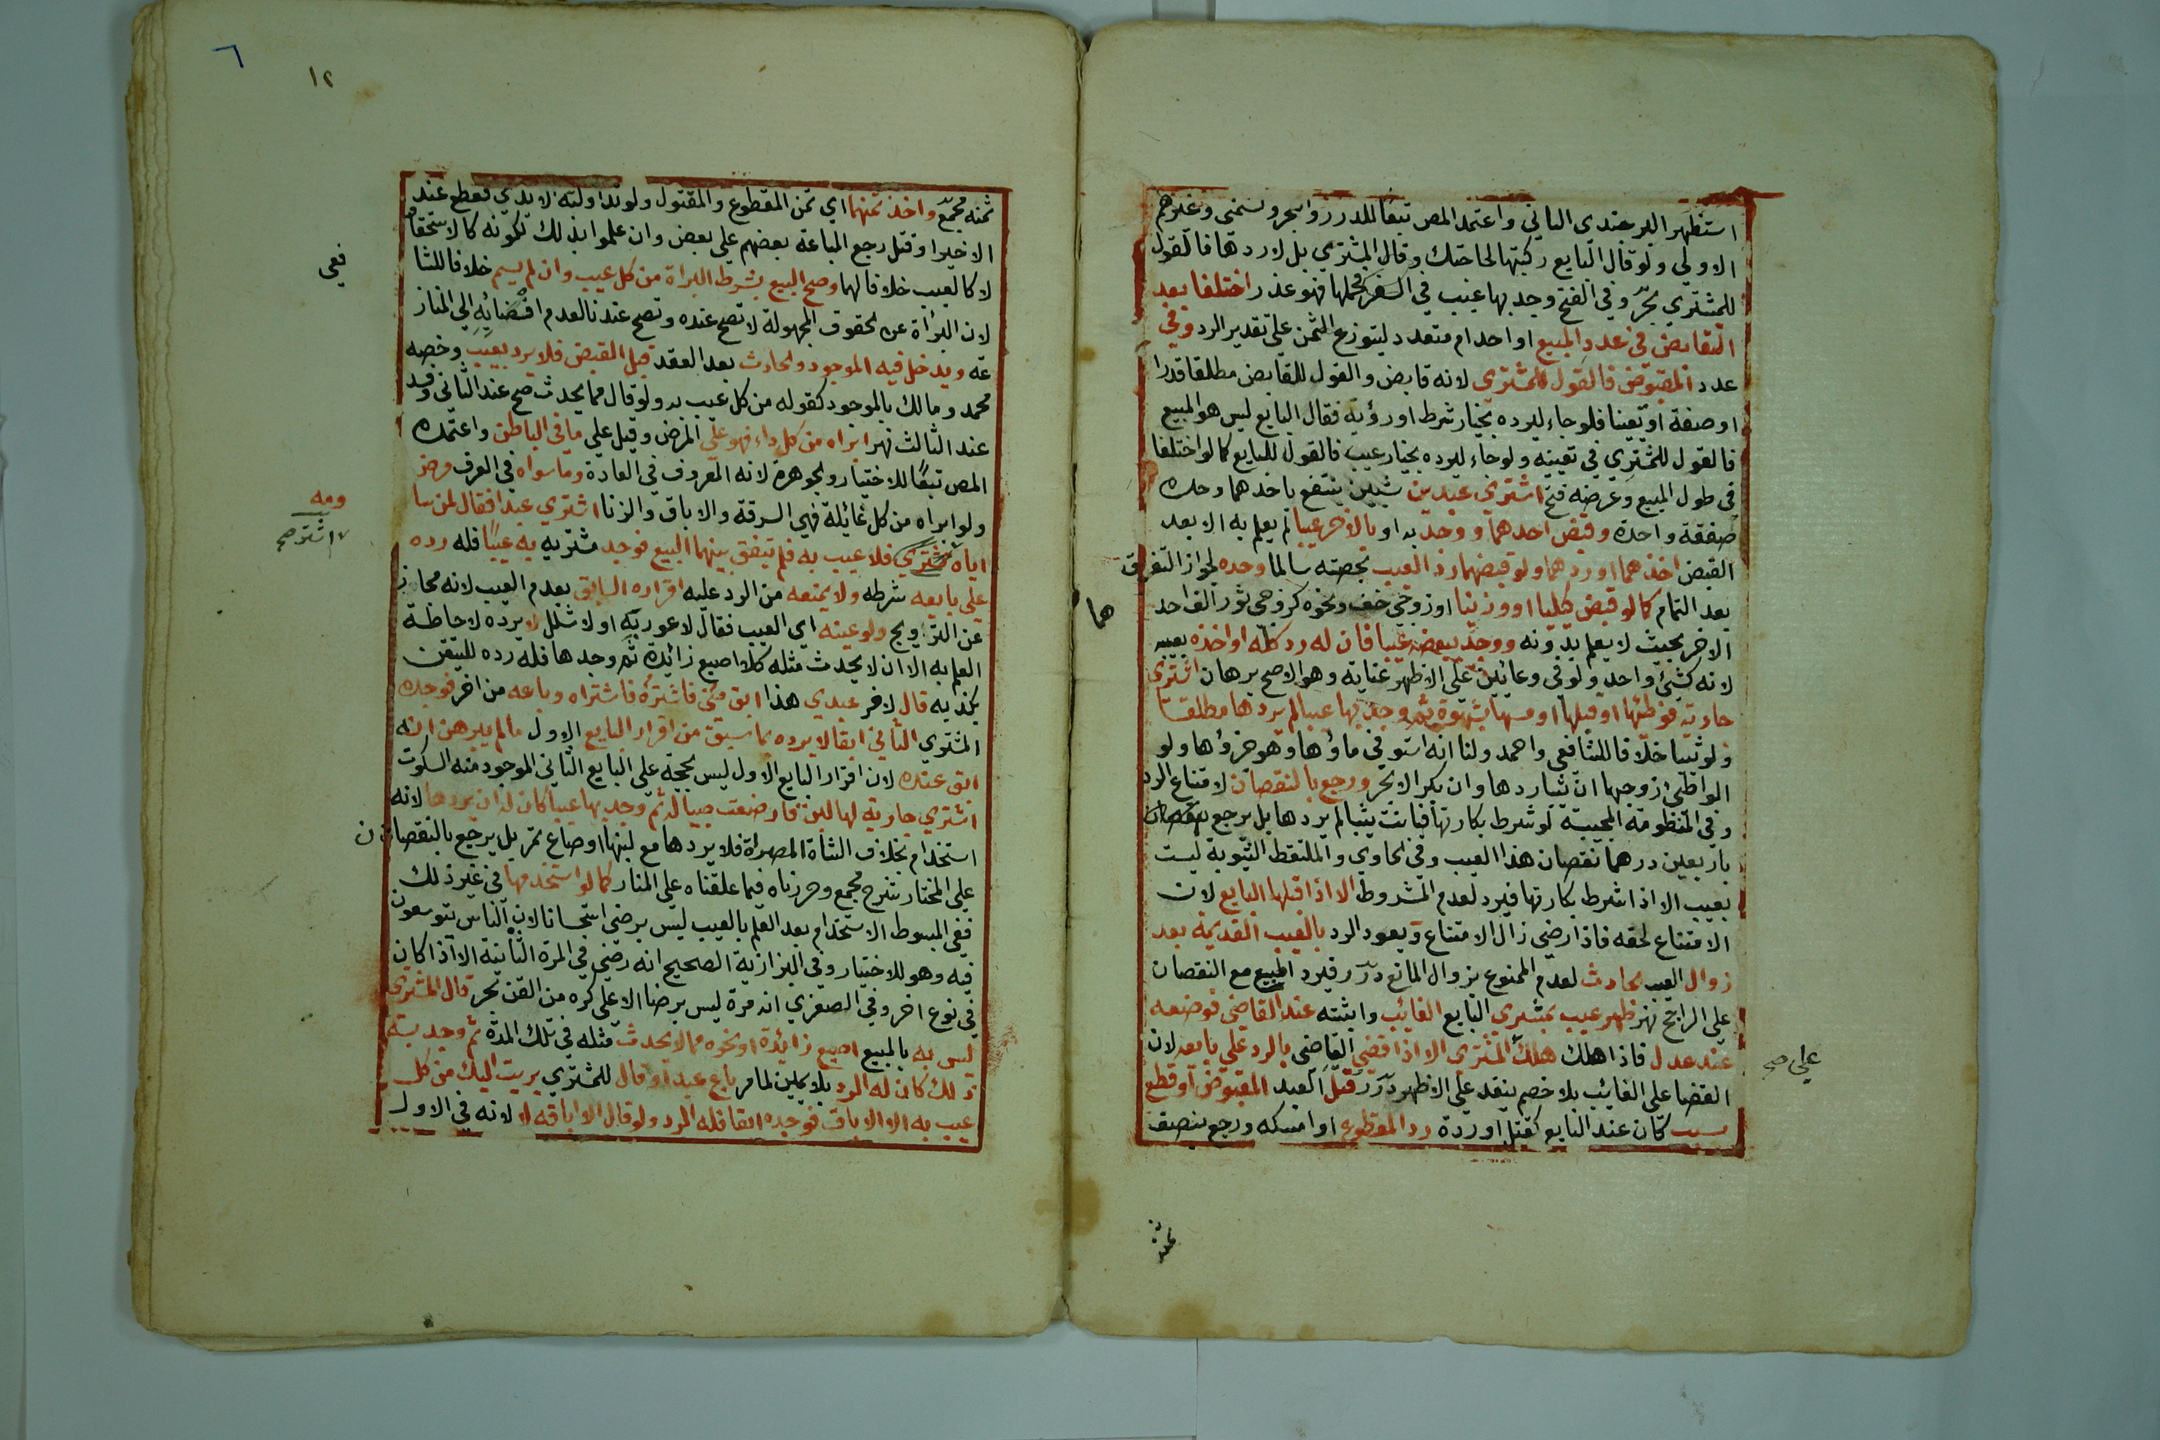 استظهر البرجندي الثاني واعتمد المص تبعا للدرر والبحر والشمني وغيرهم
الاولي ولو قال البايع ركبتها لحاجتك وقال المشتري بل لاردها فالقول
للمشتري بحر وفي الفتح وجد بها عيب في السفر فحملها فهو عذر اختلفا بعد
التقابض في عدد المبيع او احد ام متعدد ليتوزع الثمن علي تقدير الرد وفي
عدد المقبوض فالقول للمشتري لانه قابض والقول للقابض مطلقا قدرا
او صفة او تعينا فلو جاء ليرده بخيار شرط او رؤية فقال البايع ليس هو المبيع
فالقول للمشتري في تعينه ولو جاء ليرده بخيار عيب فالقول للبايع كما لو اختلفا
في طول المبيع وعرضه فتح اشتري عبدين شيين ينتفع باحدهما وحده
صفقة واحدة وقبض احدهما ووجد به او بالاخر عيبا لم يعلم به الا بعد
القبض اخذهما او ردهما ولو قبضهما رد العيب بحصته سالما وحده لجواز التفريق
بعد التمام كما لو قبض كليا او وزنيا او زوجي خف ونحوه كزوجي ثور الف احد
هما
الاخر بحيث لا يعمل بدونه ووجد ببعضه عيبا فان له رد كله او اخذه بعيبه
لانه كشئ واحد ولو في وعائين علي الاظهر عناية وهو الاصح برهان اشتري
جارية فوطئها او قبلها او مسها بشهوة ثم وجد بها عيبا لم يردها مطلقا
ولو ثيبا خلافا للشافعي واحمد ولنا انه استوفي ماؤها وهو جزؤها ولو
الواطي زوجها ان ثيبا ردها وان بكرا لا بحر ورجع بالنقصان لامتناع الرد
وفي المنظومة المحبية لو شرط بكارتها فبانت ثيبا لم يردها بل يرجع بنقصان
باربعين درهما نقصان هذا العيب وفي الحاوي والملتقط الثيوبة ليست
بعيب الا اذا شرط بكارتها فيرد لعدم المشروط الا اذا قبلها البايع لان
الامتناع لحقه فاذا رضي زال الامتناع ويعود الرد بالعيب القديم بعد
زوال العيب الحادث لعدم الممنوع بزوال المانع درر فيرد المبيع مع النقصان
علي الراجح نهر ظهر عيب بمشري البايع الغائب واثبته عند القاضي فوضعه
عند عدل فاذا هلك هلك المشتري الا اذا قضي القاضي بالرد علي بايعه لان
علي صح
القضا علي الغائب بلا خصم ينفذ علي الاظهر درر قتل العبد المقبوض او قطع
بسبب كان عند البايع كقتل او ردة رد المقطوع او امسكه ورجع بنصف
ثمنه
ثمنه مجمع واخذ ثمنهما اي ثمن المقطوع والمقتول ولو تداولته الايدي فقطع عند
الاخير او قتل رجع الباعة بعضهم علي بعض وان علموا بذلك لكونه كالاستحقاق
لا كالعيب خلافا لهما وصح البيع بشرط البراة من كل عيب وان لم يسم خلافا للشا
فعي
لان البرأة عن الحقوق المجهولة لا تصح عنده وتصح عندنا لعدم افضائه الي المناز
عة ويدخل فيه الموجود والحادث بعد العقد قبل القبض فلا يرد بعيب وخصه
محمد ومالك بالموجود كقوله من كل عيب به ولو قال مما يحدث صح عند الثاني وفسد
عند الثالث نهر ابراه من كل داء فهو علي المرض وقيل علي ما في الباطن واعتمده
المص تبعا للاختيار والجوهرة لانه المعروف في العادة وما سواه في العرف مرض
ولو ابراه من كل غائلة فهي السرقة والاباق والزنا اشتري عبدا فقال لمن سا
ومه
اياه مشتري فلا عيب به فلم يتفق بينهما البيع فوجد مشتريه به عيبا فله رده
اشتره صح
علي بايعه بشرطه ولا يمنعه من الرد عليه اقراره السابق بعدم العيب لانه مجاز
عن الترويج ولو عينه اي العيب فقال لا عور به او لا شلل لا يرده لاحاطة
العلم به الا ان لا يحدث مثله كلا اصبع زائدة ثم وجدها فله رده للتيقن
بكذبه قال لاخر عبدي هذا ابق مني فاشتره فاشتراه وباعه من اخر فوجده
المشتري الثاني ابقا لا يرده بما سبق من اقرار البايع الاول ما لم يبرهن انه
ابق عنده لان اقرار البايع الاول ليس بحجة علي البايع الثاني الموجود منه السكوت
اشتري جارية لها لبن فارضعت صبيا له ثم وجد بها عيبا كان له ان يردها لانه
استخدام بخلاف الشاة المصراة فلا يردها مع لبنها او صاع تمر بل يرجع بالنقصان
علي المختار شرح مجمع وحررناه فيما علقناه علي المنار كما لو استخدمها في غير ذلك
ففي المبسوط الاستخدام بعد العلم بالعيب ليس برضي استحسانا لان الناس يتوسعون
فيه وهو للاختيار وفي البزازية الصحيح انه رضي في المرة الثانية الا اذا كان
في نوع اخر وفي الصغري انه مرة ليس برضا الا علي كره من القن بحر قال المشتري
ليس به بالمبيع اصبع زائدة او نحوه مما لا يحدث مثله في تلك المدة ثم وجد به
ذلك كان له الرد بلا يمين لما مر باع عبدا وقال للمشتري بريت اليك من كل
عيب به الا الاباق فوجده ابقا فله الرد ولو قال الا اباقه لا لانه في الاول
٦
١٢